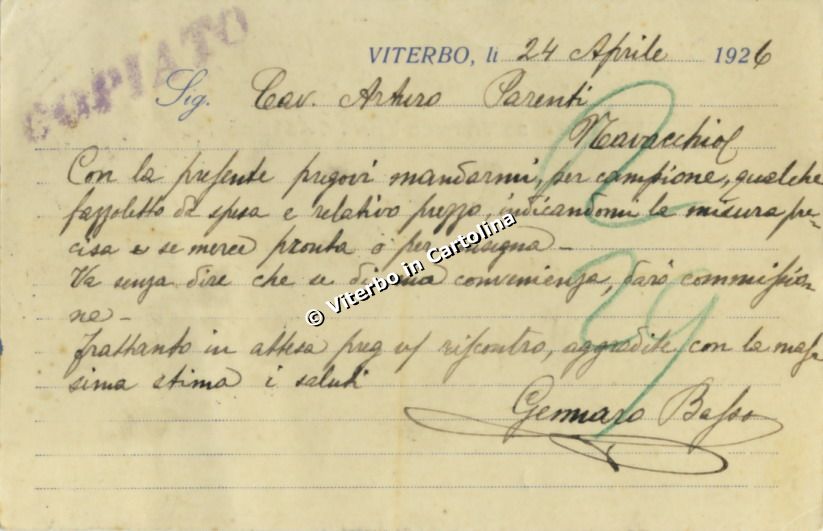 COPIATO
VITERBO, li 24 Aprile 1926
Sig. Cav. Arturo Parenti
Navacchio
Con la presente pregovi mandarmi, per campione, qualche
fazzoletto da spesa e relativo prezzo, indicandomi la misura pre-
cisa e se merce pronta o per consegna -
Va senza dire che se di mia convenienza, darò commissio-
ne -
Frattanto in attesa preg. v/ riscontro, aggradite con la mas-
sima stima i saluti
Gennaro Basso
© Viterbo in Cartolina